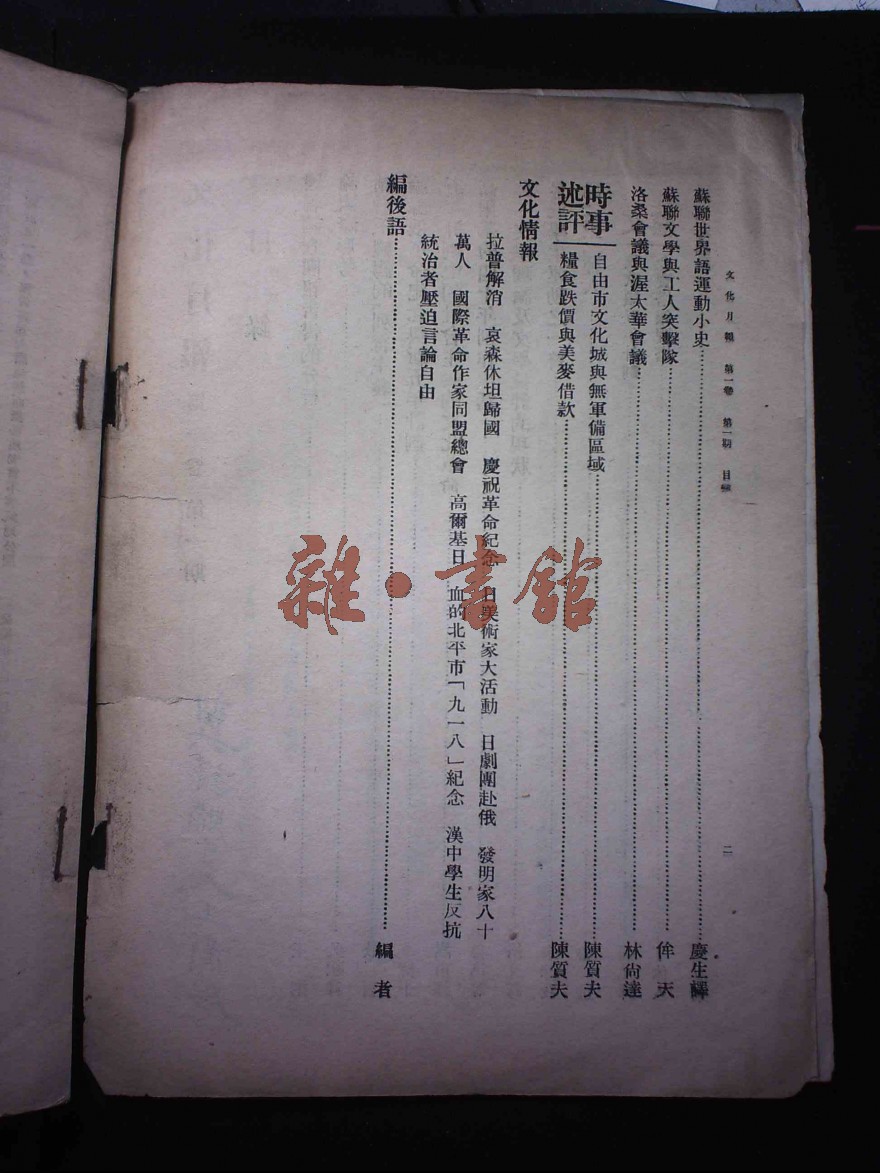 文化月報 第一卷 第一期 目錄 二
蘇聯世界語運動小史……慶生譯
蘇聯文學與工人突擊隊……侔天
洛桑會議與渥太華會議……林尙達
時事述評
自由市文化城與無軍備區域……陳質夫
糧食跌價與美麥借款……陳質夫
文化情報
拉普解消 哀森休坦歸國 慶祝革命紀念 日美術家大活動 日劇團赴俄 發明家八十
萬人 國際革命作家同盟總會 高爾基日 血的北平市「九一八」紀念 漢中學生反抗
統治者壓迫言論自由
編後語……編者
雜·書館